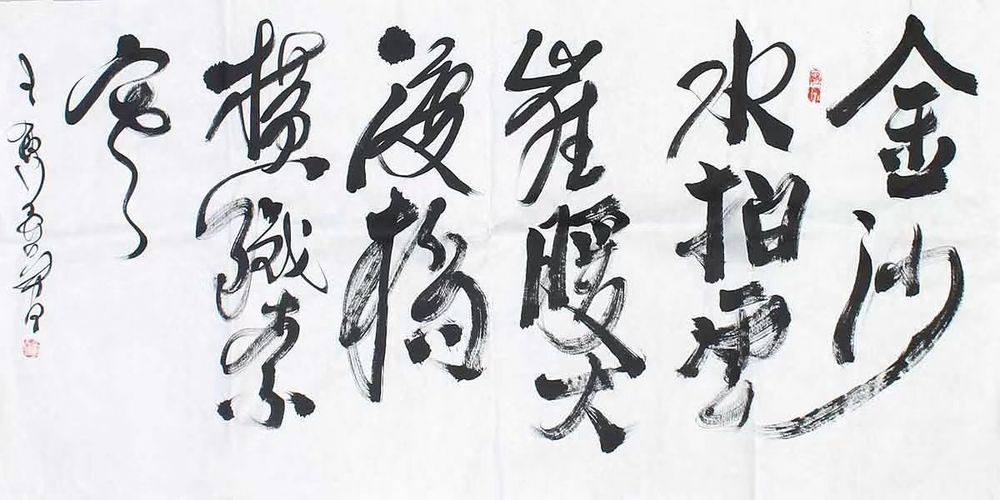 金沙
水拍雲
崖暖大
渡橋
横鐵索
寒